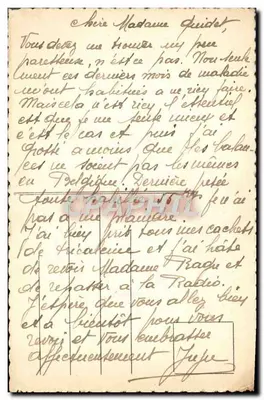 Chère Madame Guidet,
Vous devez me trouver un peu
paresseuse, n'est ce pas. Non seule
ment ces derniers mois de maladie
m'ont habituée a ne rien faire.
Mais cela n'est rien, l'essentiel
est que je me sente mieux et
c'est le cas et puis j'ai
grossi a moins que les balan-
ces ne soient pas les mêmes
en Belgique. Dernière pesée
je n'ai
pas a me plaindre.
J'ai bien pris tous mes cachets
de et j'ai hâte
de revoir Madame et
de repasser à la Radio.
J'espère que vous allez bien
et à bientôt pour vous
revoir et vous embrasser
affectueusement